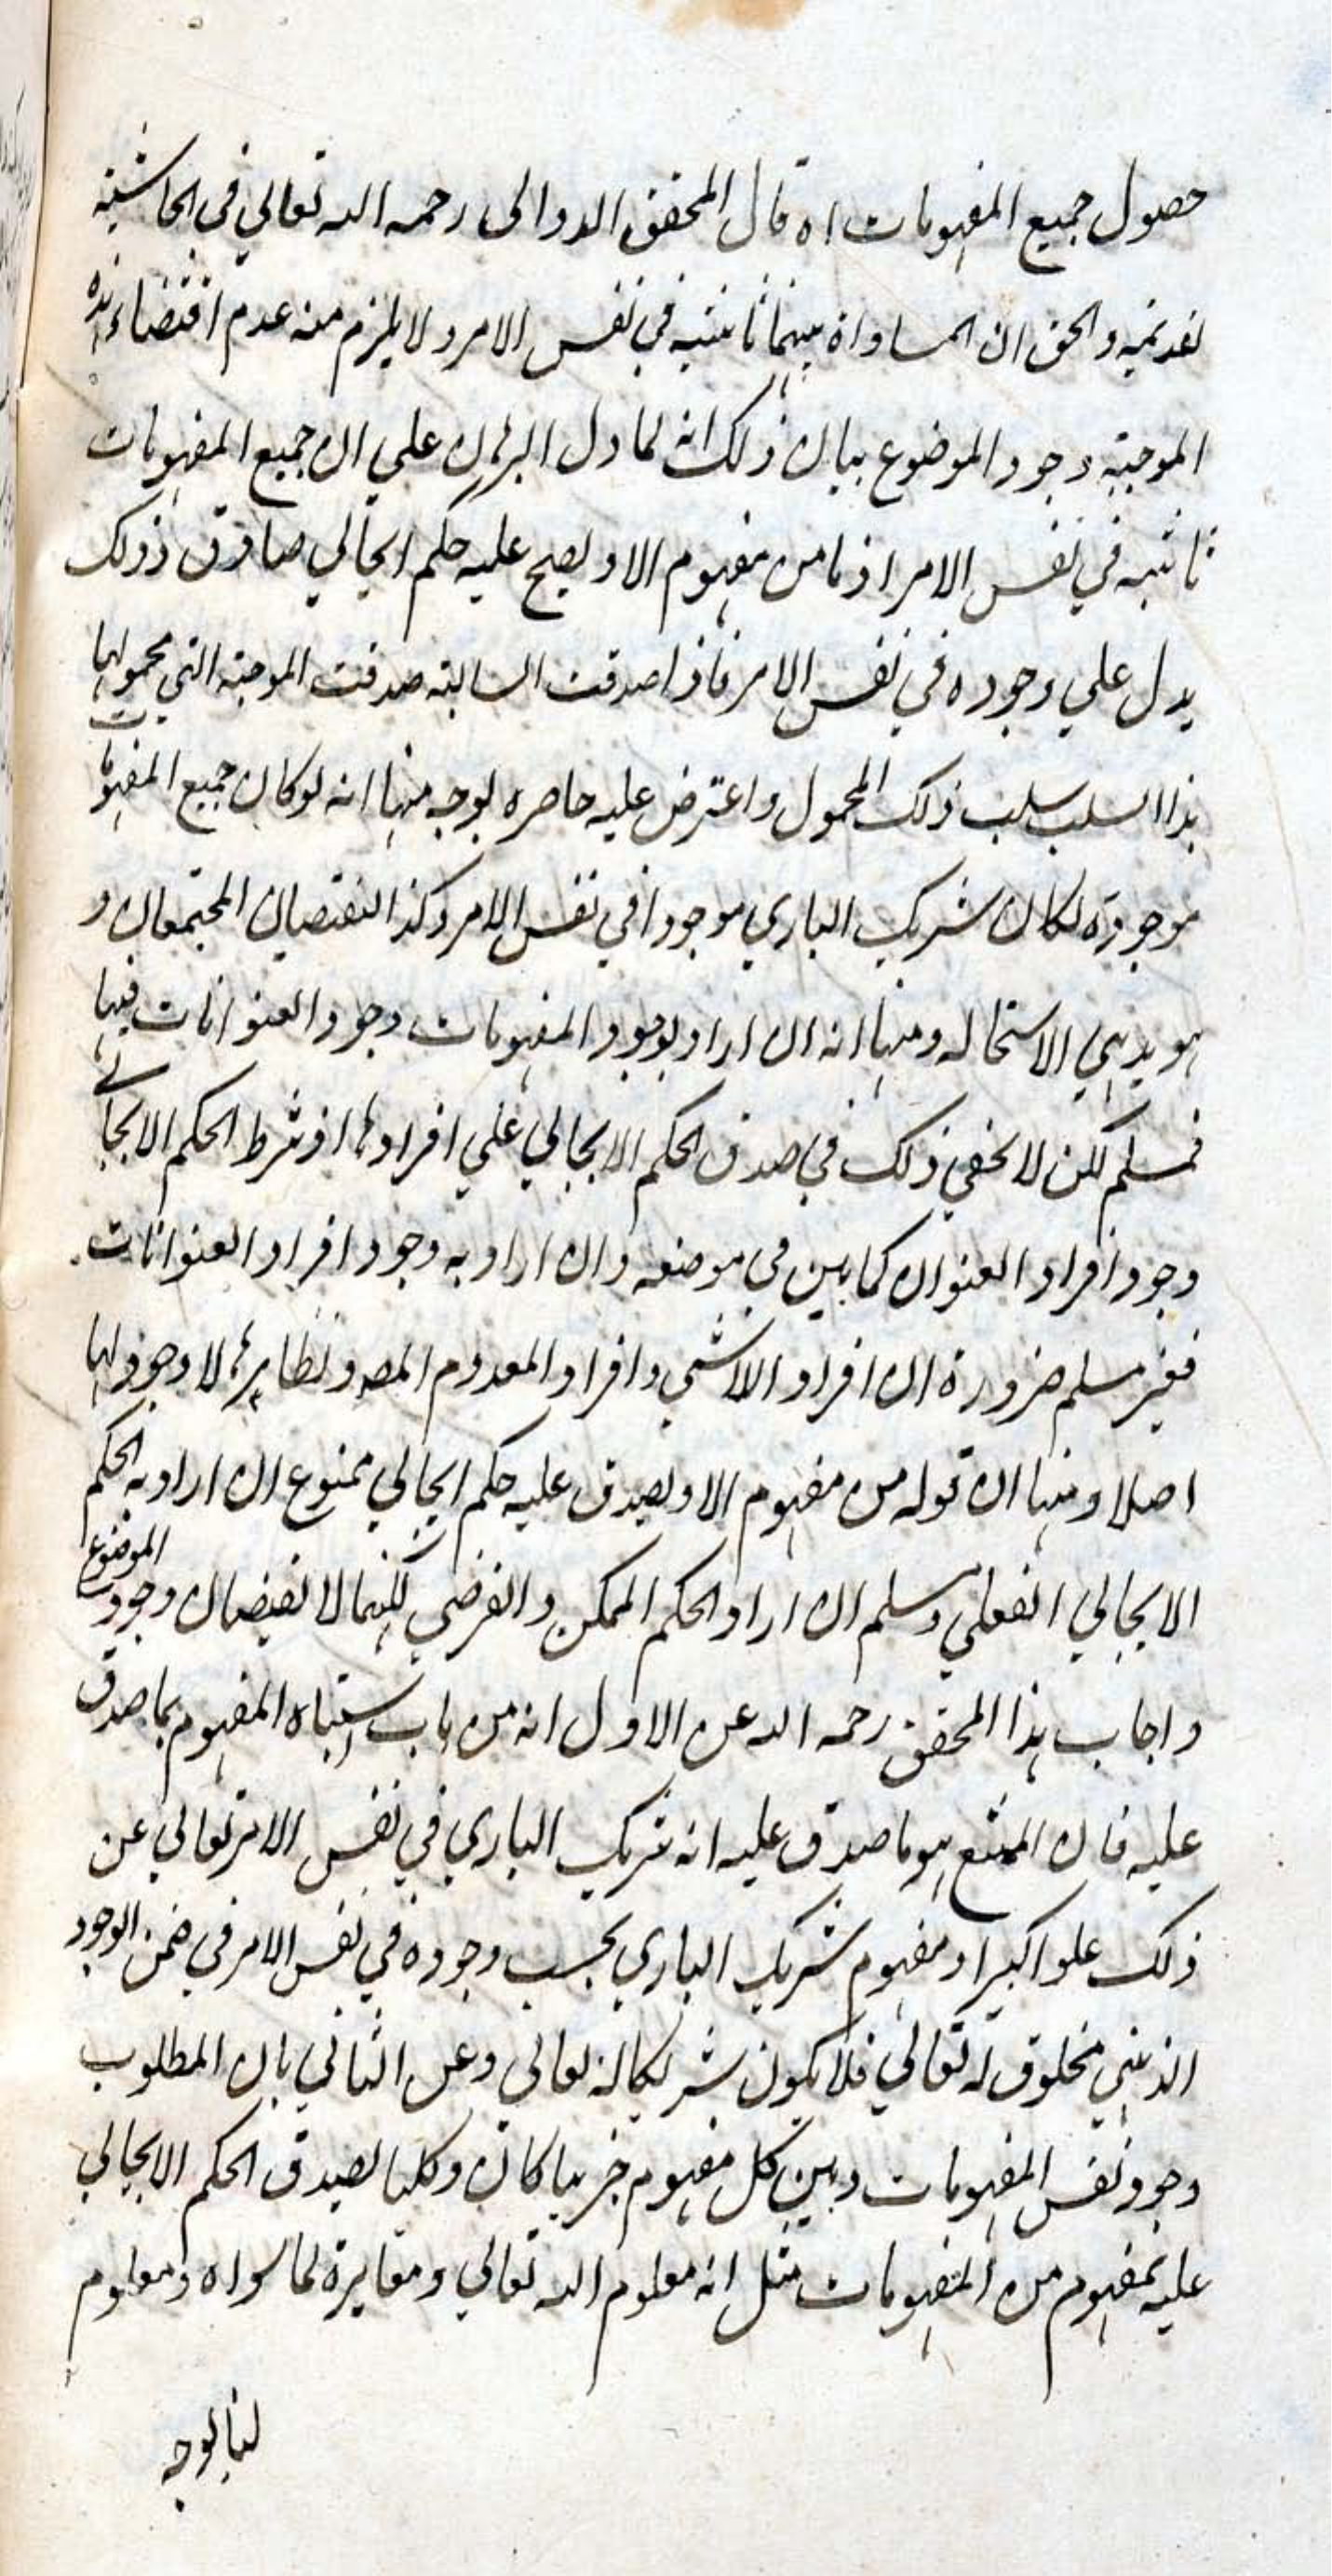 حصول جميع المفهومات اه قال المحقق الدوالى رحمه الله تعالي في الحاشية
القديمه والحق ان المساواة بينهما ثابتة في نفس الامر ولا يلزم منه عدم اقتضاء هذه
الموجبة وجود الموضوع بيان ذلك انه لما دل البرهان علي ان جميع المفهومات
ثابتة في نفس الامر اذ ما من مفهوم الا و يصح عليه حكم ايجابي صادق و ذلك
يدل علي وجوده في نفس الامر فاذا صدقت السالبة صدقت الموجبة التي محمولها
هذا السلب سلب ذلك المحمول واعترض عليه معاصره بوجوه منها انه لو كان جميع المفهومات
موجودة لكان شريك الباري موجودا في نفس الامر وكذا النقيضان المجتمعان و
هو بديهي الاستحاله ومنها انه ان اراد بوجود المفهومات وجود العنوانات فيها
فمسلم لكن لا يكفي ذلك في صدق الحكم الايجابي علي افرادها اذ شرط الحكم الايجابي
وجود افراد العنوان كما بين في موضعه وان اراد به وجود افراد العنوانات
فغير مسلم ضرورة ان افراد اللاشي وافراد المعدوم المط و نظايرها لا وجود لها
اصلا ومنها ان قوله من مفهوم الا ويصدق عليه حكم ايجابي ممنوع ان اراد به الحكم
الايجابي الفعلي و مسلم ان اراد الحكم الممكن والفرضي لكنهما لا يقتضيان وجود الموضوع
واجاب هذا المحقق رحمه الله عن الاول انه من باب اشتباه المفهوم بما صدق
عليه فان الممتنع هو ما صدق عليه انه شريك الباري في نفس الامر تعالي عن
ذلك علوا كبيرا و مفهوم شريك الباري بحسب وجوده في نفس الامر في ضمن الوجود
الذهني مخلوق له تعالي فلا يكون شريكا له تعالى وعن الثاني بان المطلوب
وجود نفس المفهومات وبين كل مفهوم جزييا كان و كليا لصدق الحكم الايجابي
عليه بمفهوم من المفهومات مثل انه معلوم الله تعالي ومغايرة لما سواه ومعلوم
لنا بوجه